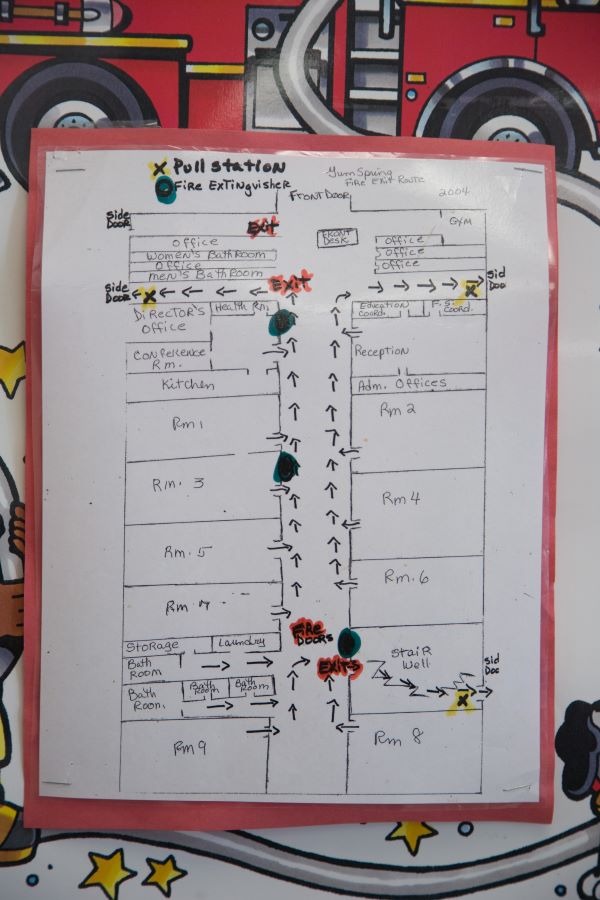 x Pull station
Fire Extinguisher
Gum Spring
Fire Exit Route
2004
Front Door
Side Door
Exit
Gym
Front Desk
Office
Women's Bathroom
Office
Men's Bathroom
Office
Office
Office
Side Door
x
EXIT
x
Sid Doo
Director's Office
Health Rm
Education Coord.
F.S. Coord.
Conference Rm.
Reception
Kitchen
Adm. Offices
Rm 1
Rm 2
Rm. 3
Rm 4
Rm. 5
Rm. 6
Rm 7
Fire Doors
Storage
Laundry
Stair Well
Bath Room
EXIT
Sid Doo
Bath Room
Bath Room
Bath Room
x
Rm 9
Rm 8